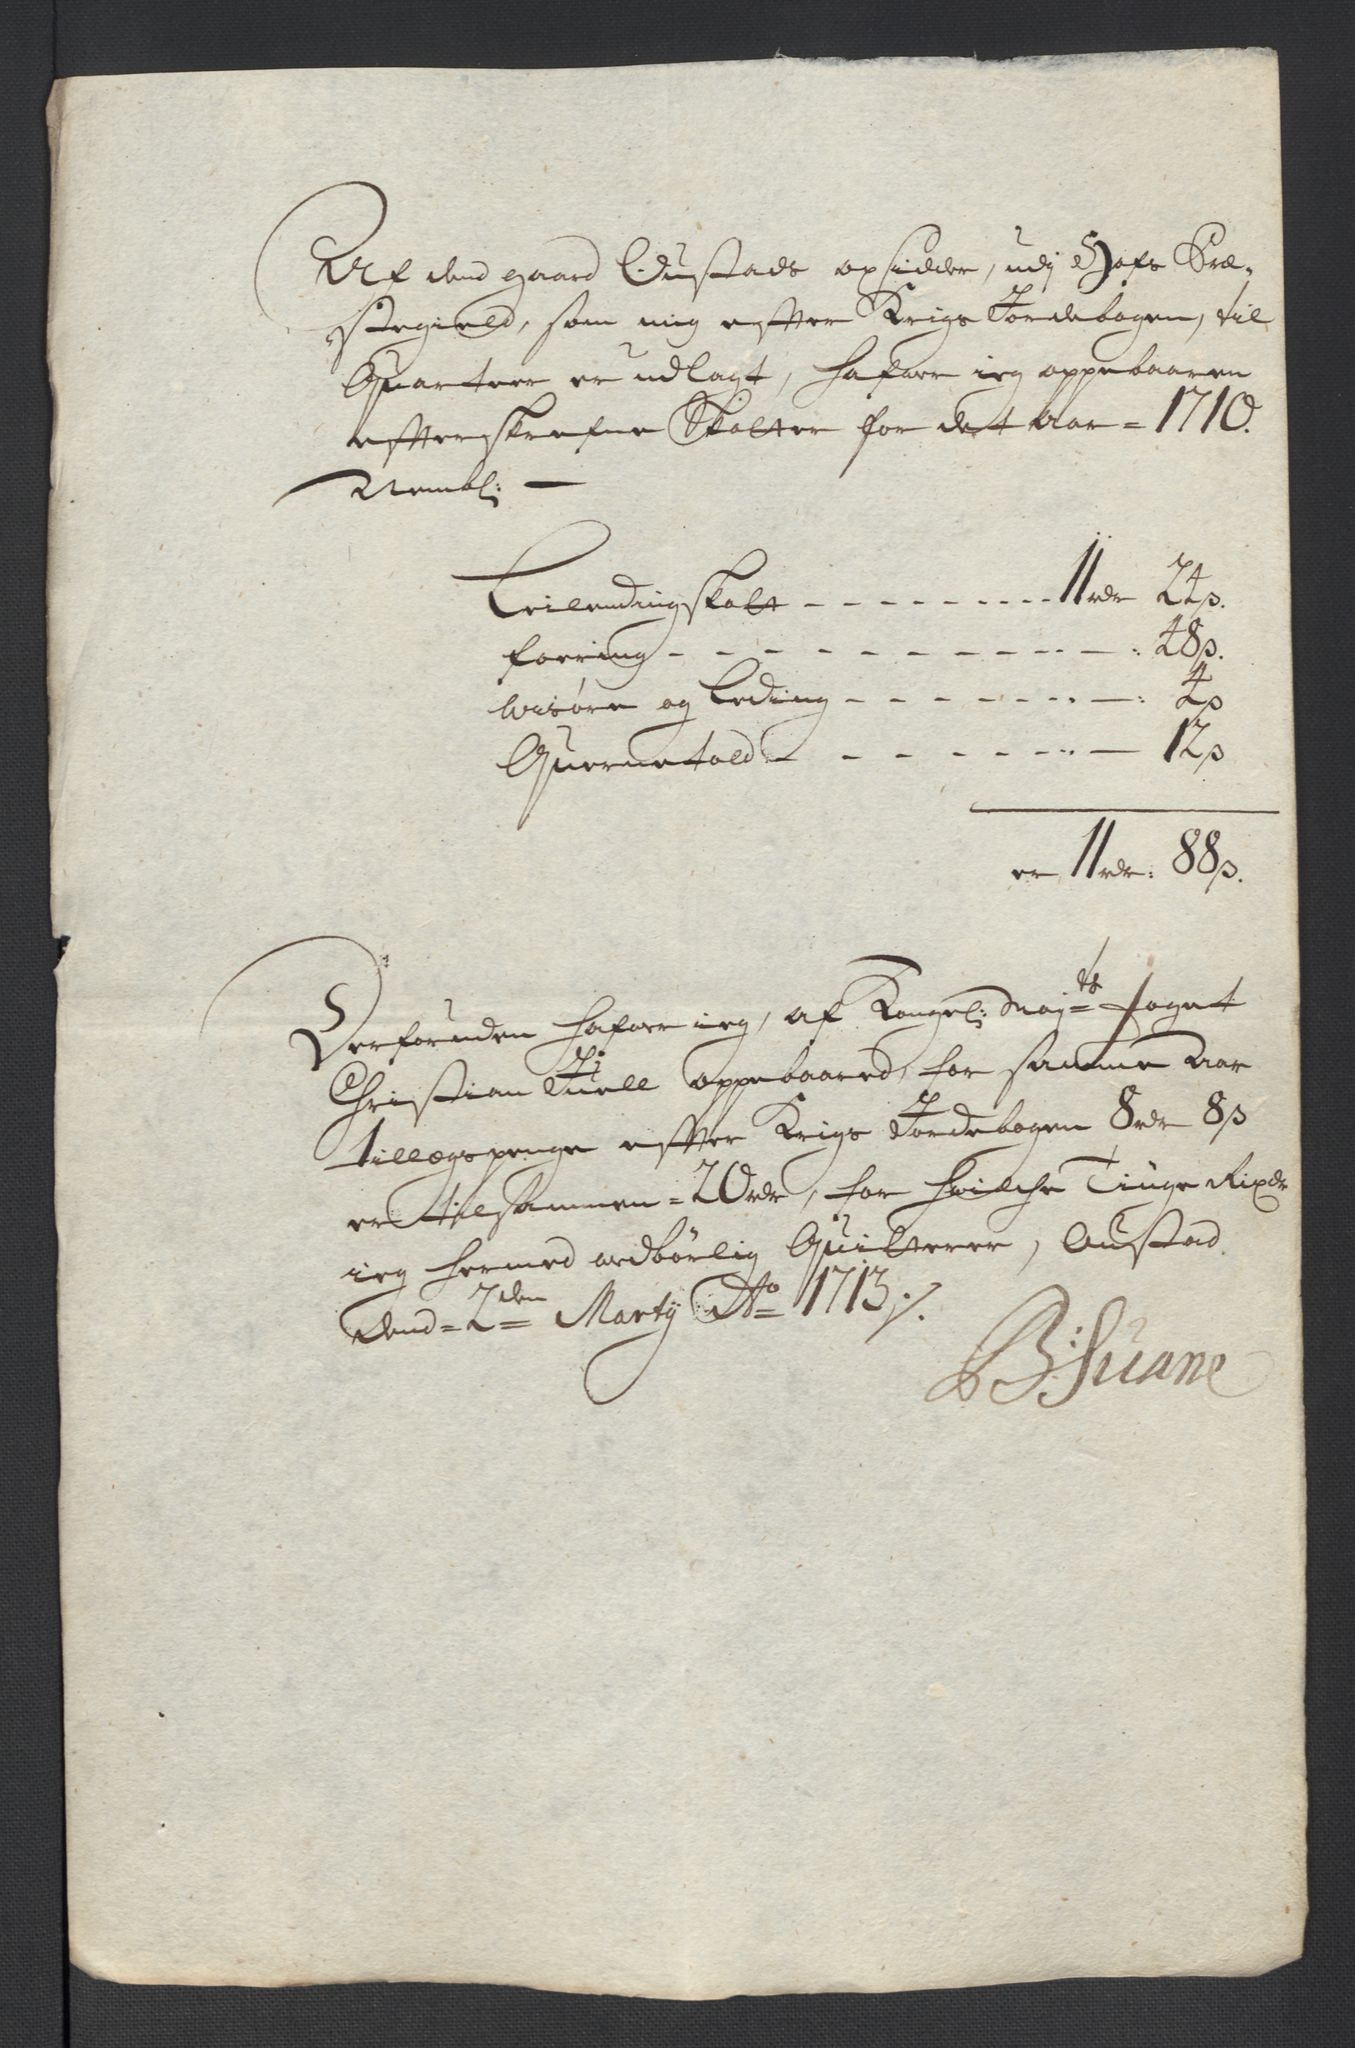 Af dend gaard Oustads opsidder, udj Hofs Præ-
stegield, som mig effter Krigs Jordebogen, til
Quarteer er udlagt, hafuer ieg oppebaaren
effterskrefne Skatter for det Aar = 1710.
Nembl: —
Leilendingskatt - - - - - - - - - 11 rdr 24 β.
foering - - - - - - - - - - - — : 48 β.
wisøre og Leding - - - - - - - — : 4 β
Quernetold - - - - - - - — 12 β
er 11 rdr: 88 β.
Derforuden hafuer ieg, af Kongel: May=ts foget
Christian Juell oppebaared, for samme Aar
tillægspenge effter Krigs Jordebogen 8 rdr 8 β
er tilsammen = 20 rdr, for huilche Tiuge Rixdr
ieg hermed ærbørlig Quitterer, Oustad
Dend = 2den Martij Ao 1713 ./.
B: Suane